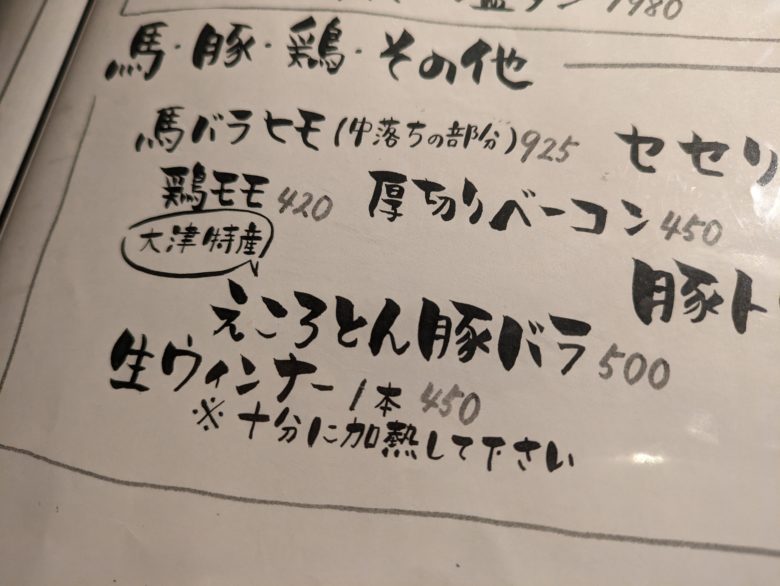 1980
馬・豚・鶏・その他
馬バラヒモ(中落ちの部分)925 セセリ
鶏モモ 420 厚切りベーコン 450
大津特産
豚ト
えころとん豚バラ 500
生ウィンナー 1本 450
※十分に加熱して下さい